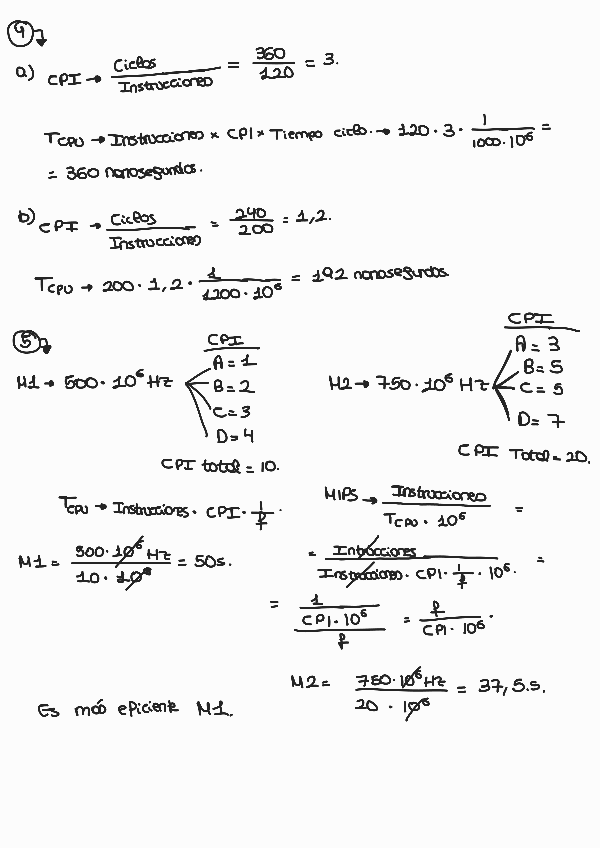 4
a) CPI → Ciclos / Instrucciones = 360 / 120 = 3.
TCPU → Instrucciones × CPI × Tiempo ciclo. → 120 · 3 · 1 / 1000 · 10⁶ =
= 360 nanosegundos.
b) CPI → Ciclos / Instrucciones = 240 / 200 = 1,2.
TCPU → 200 · 1,2 · 1 / 1200 · 10⁶ = 192 nanosegundos
5
M1 → 500 · 10⁶ Hz
CPI
A = 1
B = 2
C = 3
D = 4
CPI total = 10.
M2 → 750 · 10⁶ Hz
CPI
A = 3
B = 5
C = 5
D = 7
CPI Total = 20.
TCPU → Instrucciones · CPI · 1 / f ·
MIPS → Instrucciones / TCPU · 10⁶ =
= Intrucciones / Instrucciones · CPI · 1 / f · 10⁶. =
= 1 / CPI · 10⁶ / f = f / CPI · 10⁶ .
M1 = 500 · 10⁶ Hz / 10 · 10⁶ = 50s.
M2 = 750 · 10⁶ Hz / 20 · 10⁶ = 37,5.s.
Es más eficiente M1.